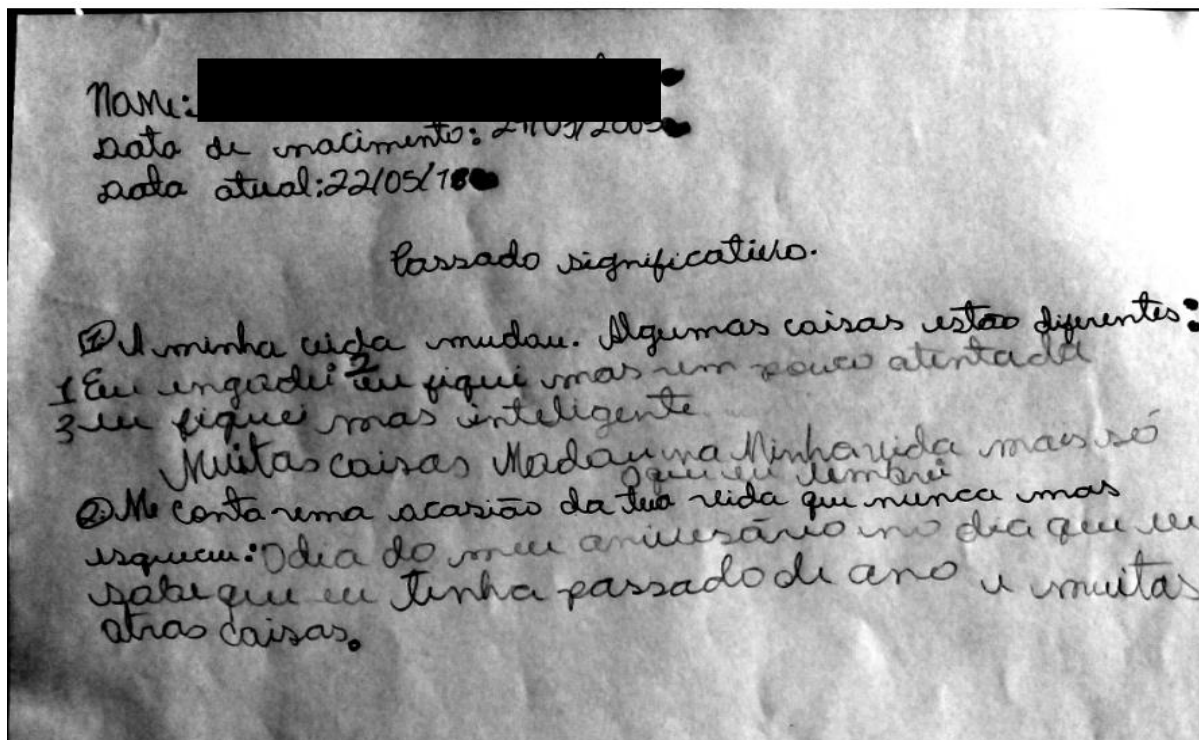 Nome:
Data de nacimento: 21/05/2009
Data atual:22/05/18
Passado significativo.
① A minha vida mudou. Algumas coisas estão diferentes:
1 Eu engordei 2 eu fiquei mas um pouco atentada
3 eu fiquei mas inteligente
Muitas coisas Modou na Minha vida mais só
o que eu lembrei
② Me conta uma ocasião da tua vida que nunca mas
esqueceu: O dia do meu aniversário no dia que eu
sabe que eu tinha passado de ano e muitas
otras coisas.